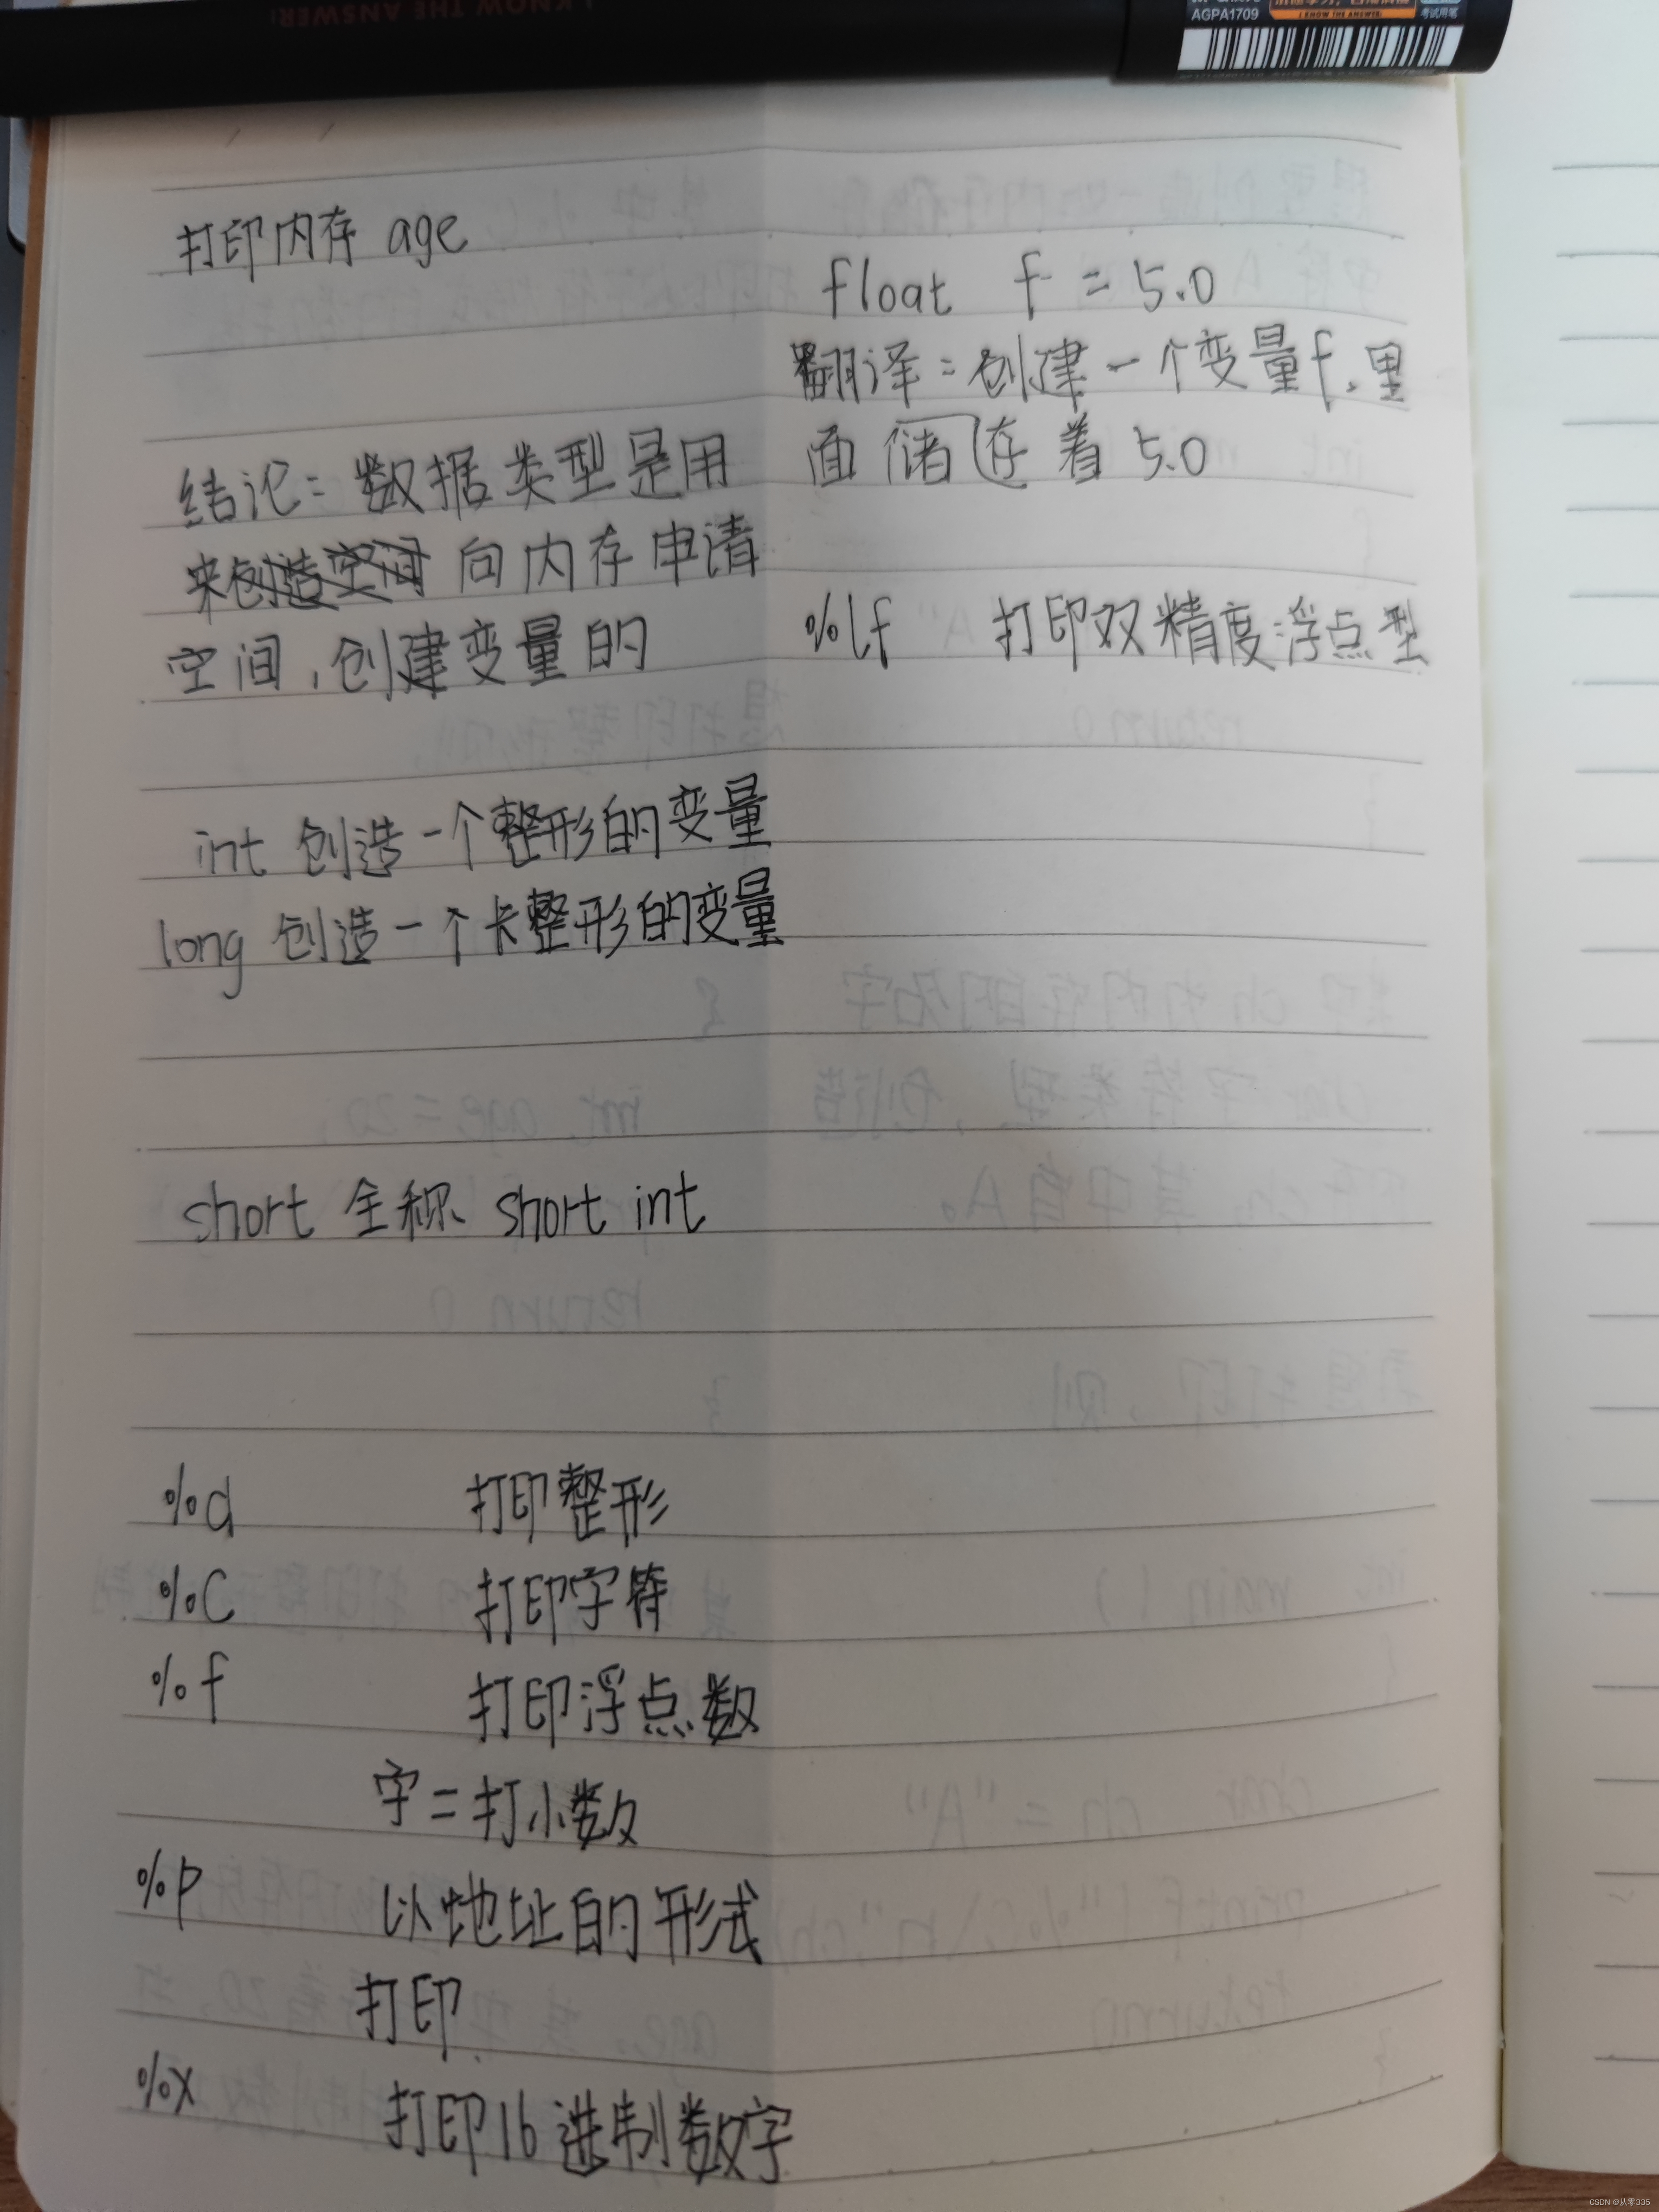 I KNOW THE ANSWER!
AGPA1709
I KNOW THE ANSWER!
考试用笔
打印内存 age
结论:数据类型是用
来创造空间 向内存申请
空间,创建变量的
int 创造一个整形的变量
long 创造一个长整形的变量
short 全称 short int
%d 打印整形
%c 打印字符
%f 打印浮点数
字=打小数
%p 以地址的形式
打印
%x 打印16进制数字
float f = 5.0
翻译:创建一个变量f,里
面储存着 5.0
%lf 打印双精度浮点型
CSDN @从零335